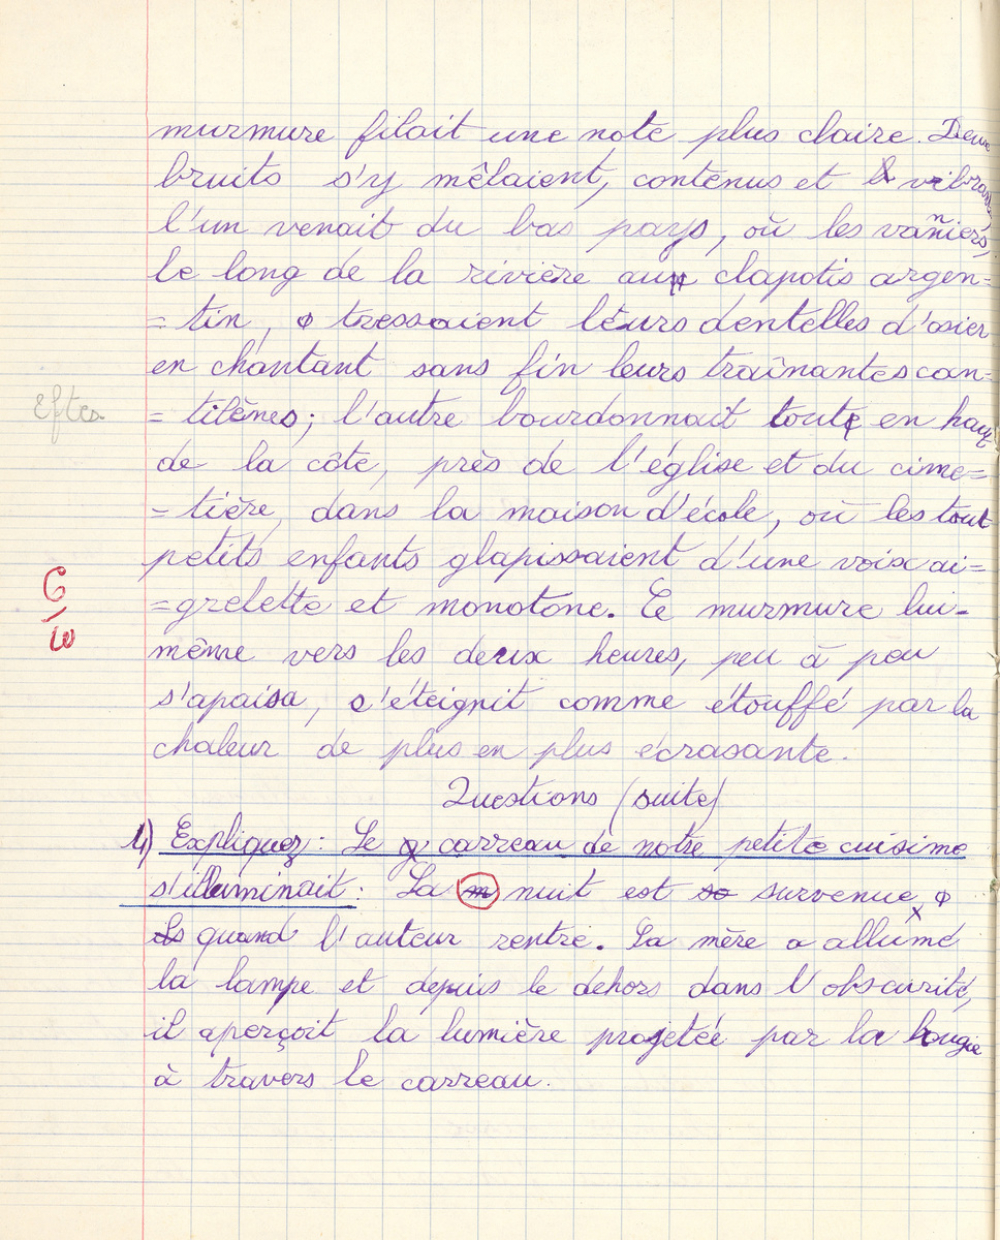 murmure filait une note plus claire. Deux
bruits s'y mêlaient, contenus et vibrants,
l'un venait du bas pays, où les vanniers,
le long de la rivière au clapotis argen=
=tin, tressaient leurs dentelles d'osier
en chantant sans fin leurs traînantes can=
Eftes
=tilènes; l'autre bourdonnait tout en haut
de la côte, près de l'église et du cime=
=tière, dans la maison d'école, où les tout
petits enfants glapissaient d'une voix ai=
6/10
=grelette et monotone. Ce murmure lui-
même vers les deux heures, peu à peu
s'apaisa, s'éteignit comme étouffé par la
chaleur de plus en plus écrasante.
Questions (suite)
4) Expliquez: Le carreau de notre petite cuisine
s'illuminait: La nuit est survenue,
quand l'auteur rentre. La mère a allumé
la lampe et depuis le dehors dans l'obscurité,
il aperçoit la lumière projetée par la bougie
à travers le carreau.